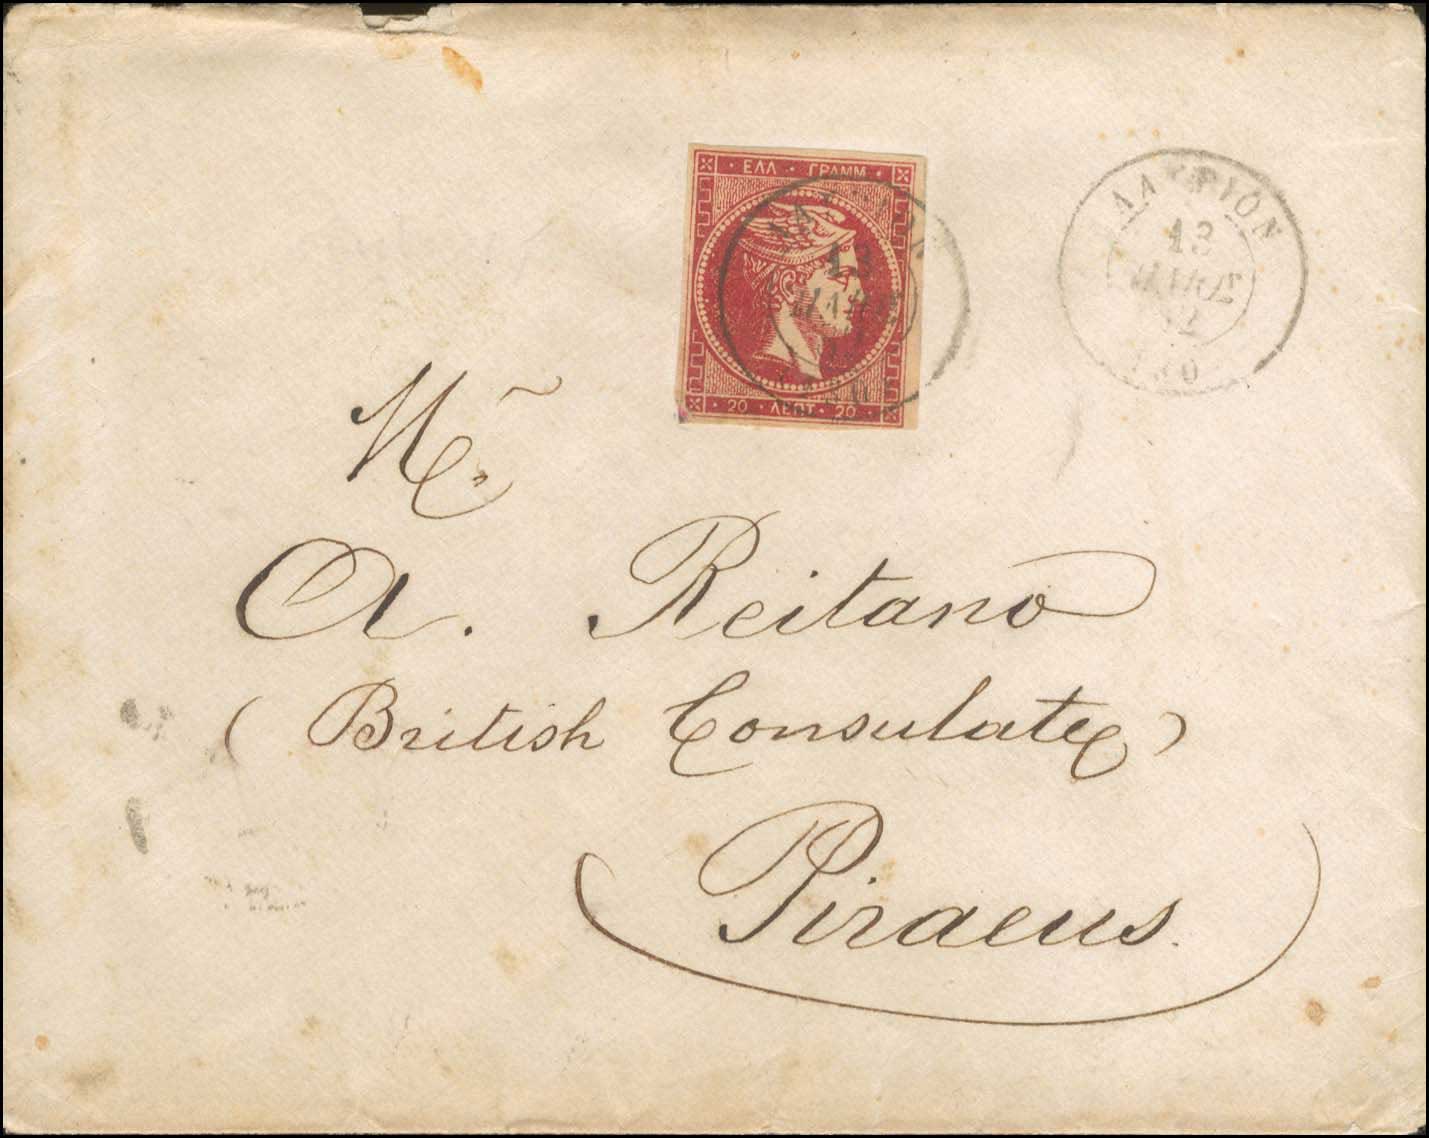 ΕΛΛ · ΓΡΑΜΜ
20 · ΛΕΠΤ · 20
ΛΑΥΡΙΟΝ
13
ΜΑΡΤ
130
Mr
A. Reitano
(British Consulate)
Piraeus.